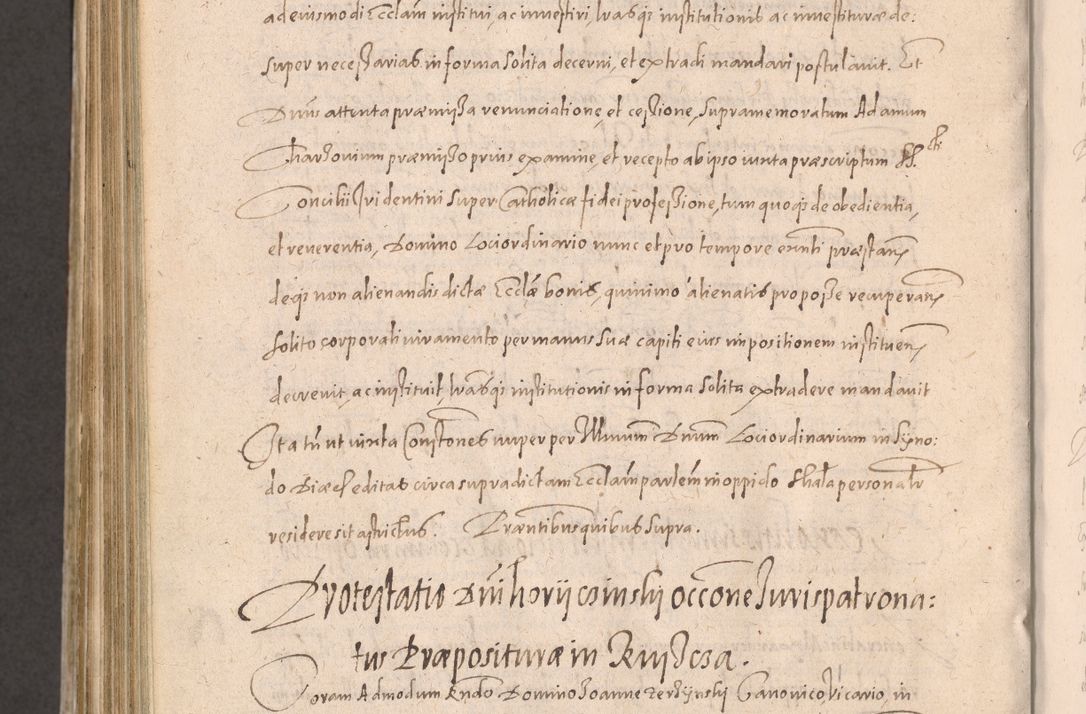 adeiusmodi Eccl̃am institui, ac investiri, l̃rasq́; institutionis ac investituræ de:
super necessarias in forma solita decerni, et extradi mandari postulavit. Et
Dñus attenta præmissa renunciatione, et cessione, supramemoratum Adamum
præmisso prius examine, et recepto ab ipso iuxta præscriptum
Concilii Tridentini super Catholicæ fidei professione, tum quoq́; de obedientia,
et reverentia, Domino Lociordinario nunc et pro tempore exñti præstan̄
deq́; non alienandis dictæ Eccl̃æ bonis, quinimo alienatis pro posse recuperan̄
solito corporali iuramento per manus suæ capiti eius impositionem instituen̄
decrevit, ac instituit, l̃rasq́; institutionis in forma solita extradere mandavit
Ita tñ ut iuxta Constõnes nuper per Illmum Dnum Lociordinarium in Syno:
do Diæces editas circa supradictam Eccl̃am parlem in oppido Skala personalr
residere sit astrictus. Præntibus quibus supra.
Protestatio Dñi horii cosinskij occõne Iurispatrona:
tus Præposituræ in Ruszcza.
Coram Admodum Rndo Domino Joanne Canonico, Vicario, in